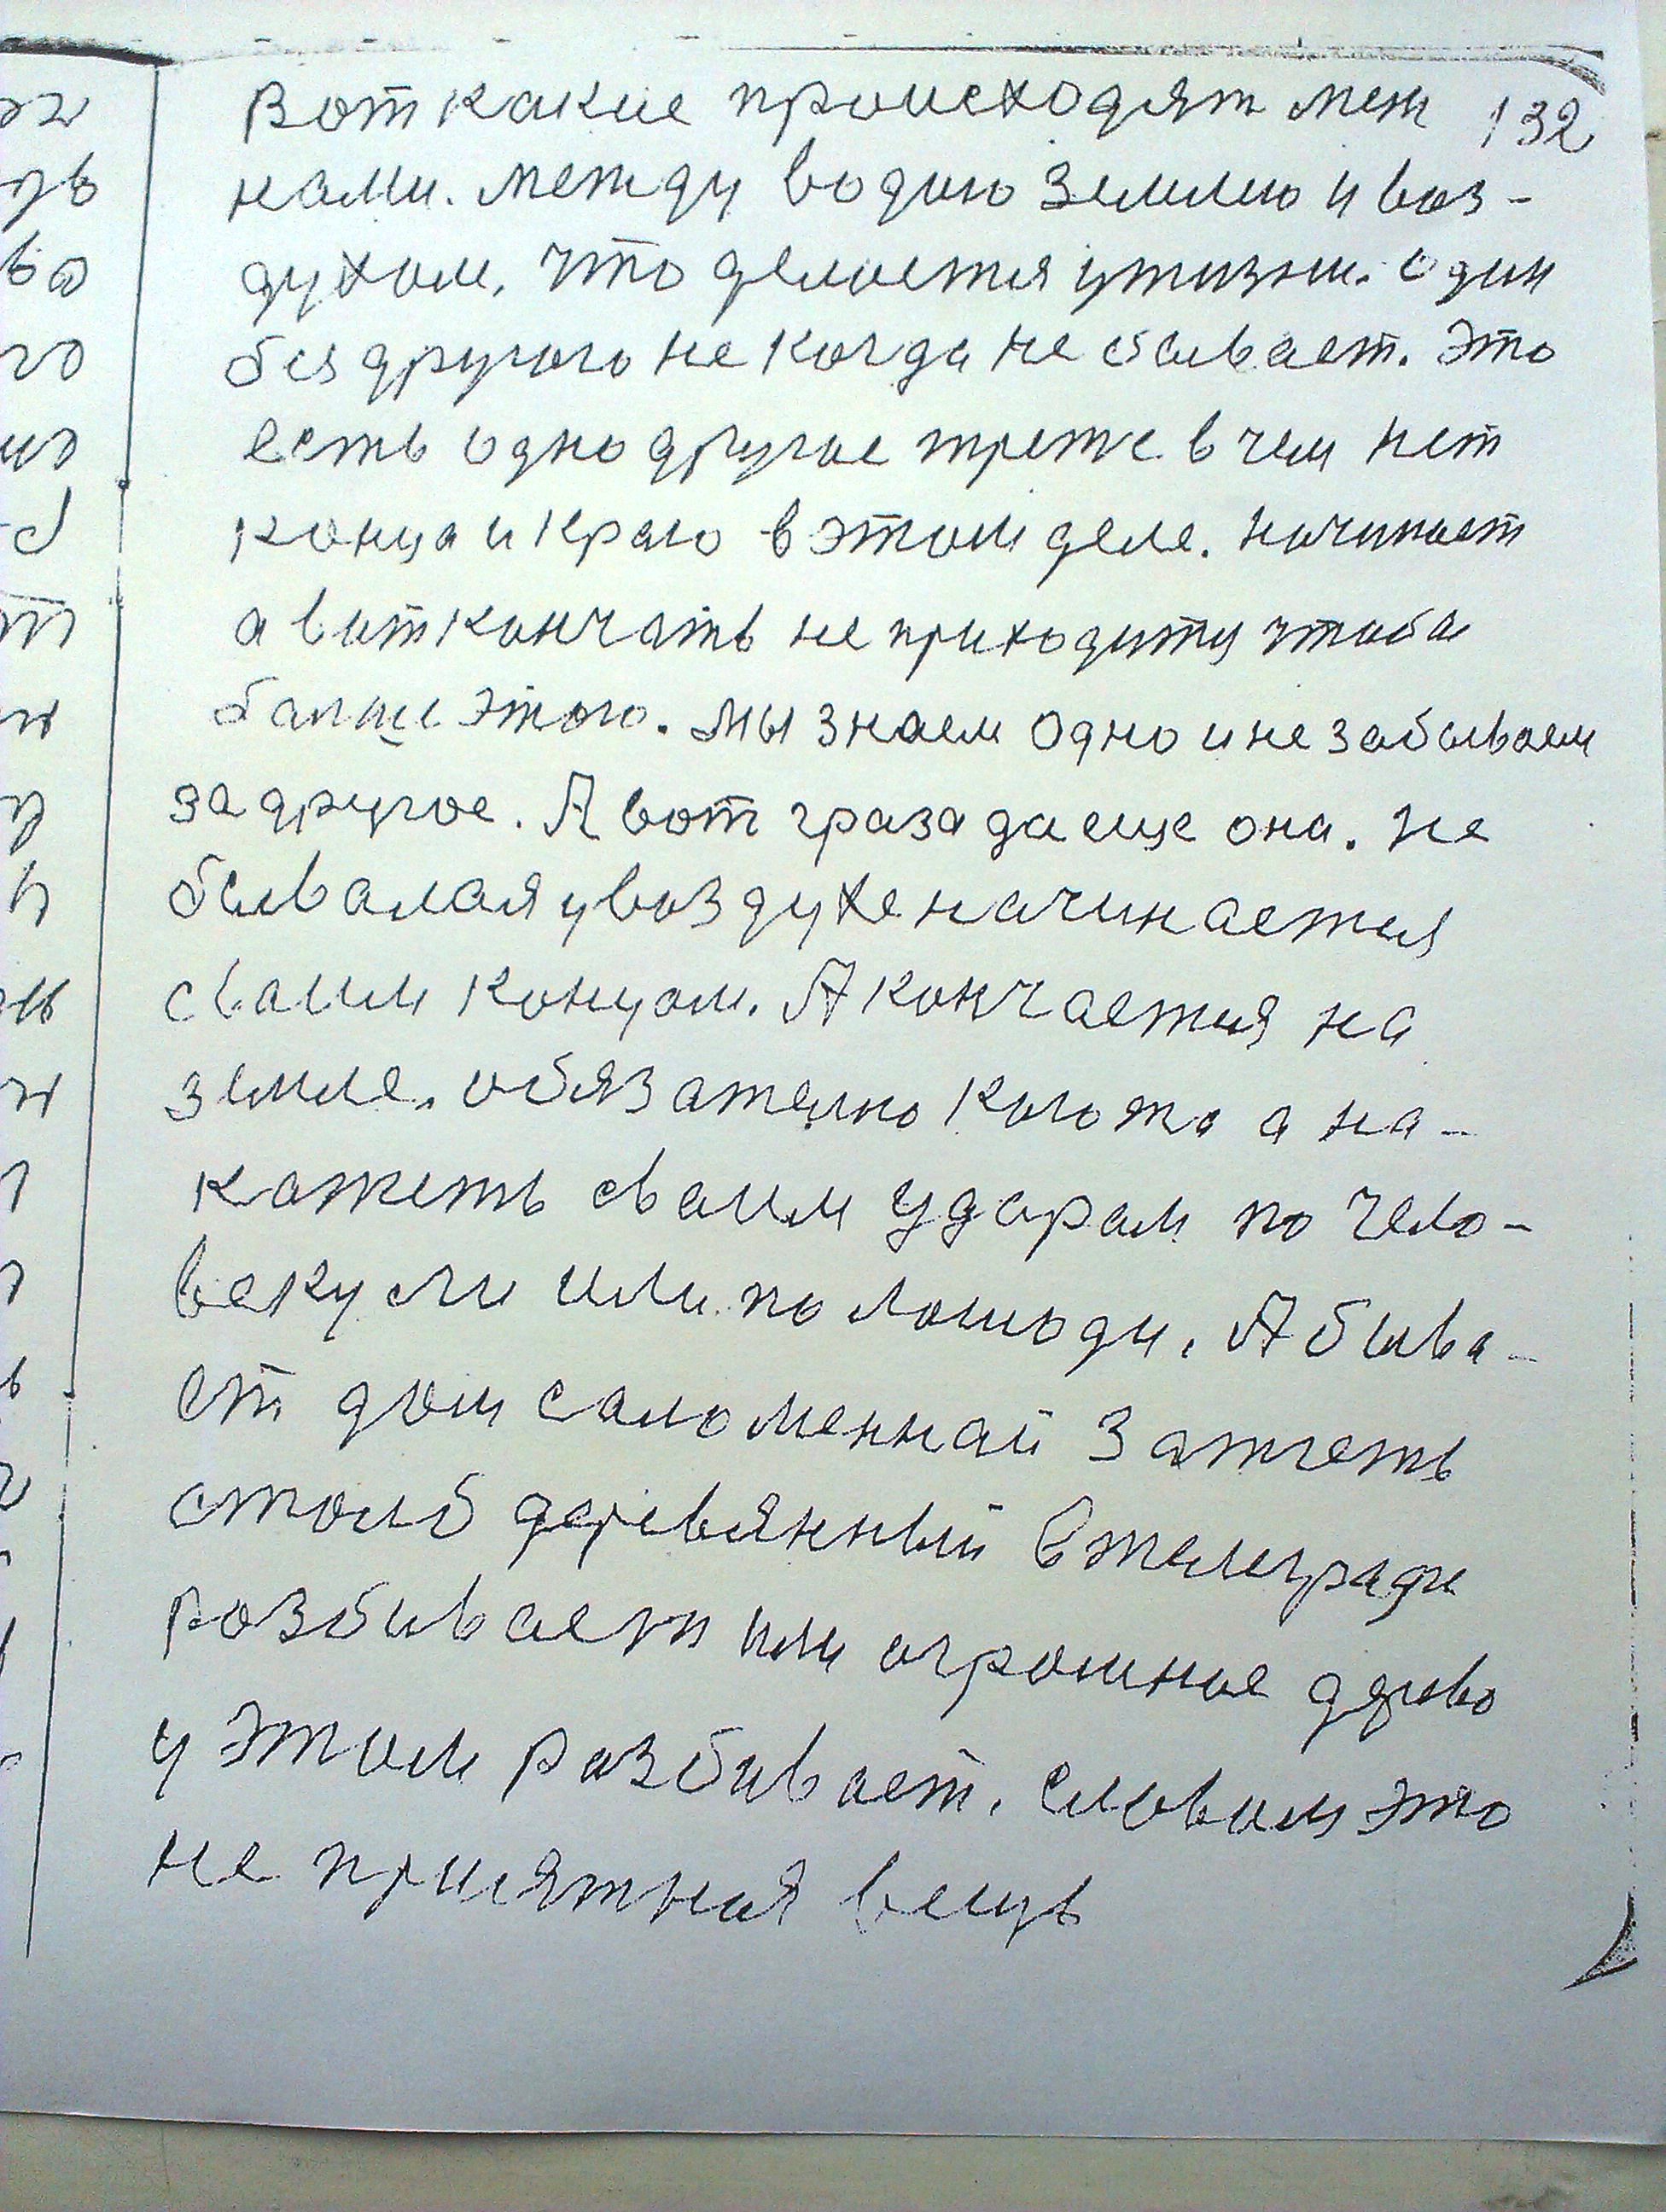 132
Вот какие происходят меж
нами. между водою землею и воз-
духом, что делается у жизни. один
без другого не когда не бывает. Это
есть одно другое треже в чем нет
конца и краю в этом деле. начинает
а вот кончать не приходится чтоба
балше этого. мы знаем одно и не забываем
за другое. А вот граза да еще она. не
бывалая у воздухе начинается
сваим концом. А кончается на
земле. обязателно кого то а на-
кажеть сваим ударам по чело-
веку ли или по лошоди. А быва-
ет дом саломеннай зажгеть
столб деревянный в телеграфе
розбивает или огромное дерево
у этом разбивает. словом это
не приятная вещь